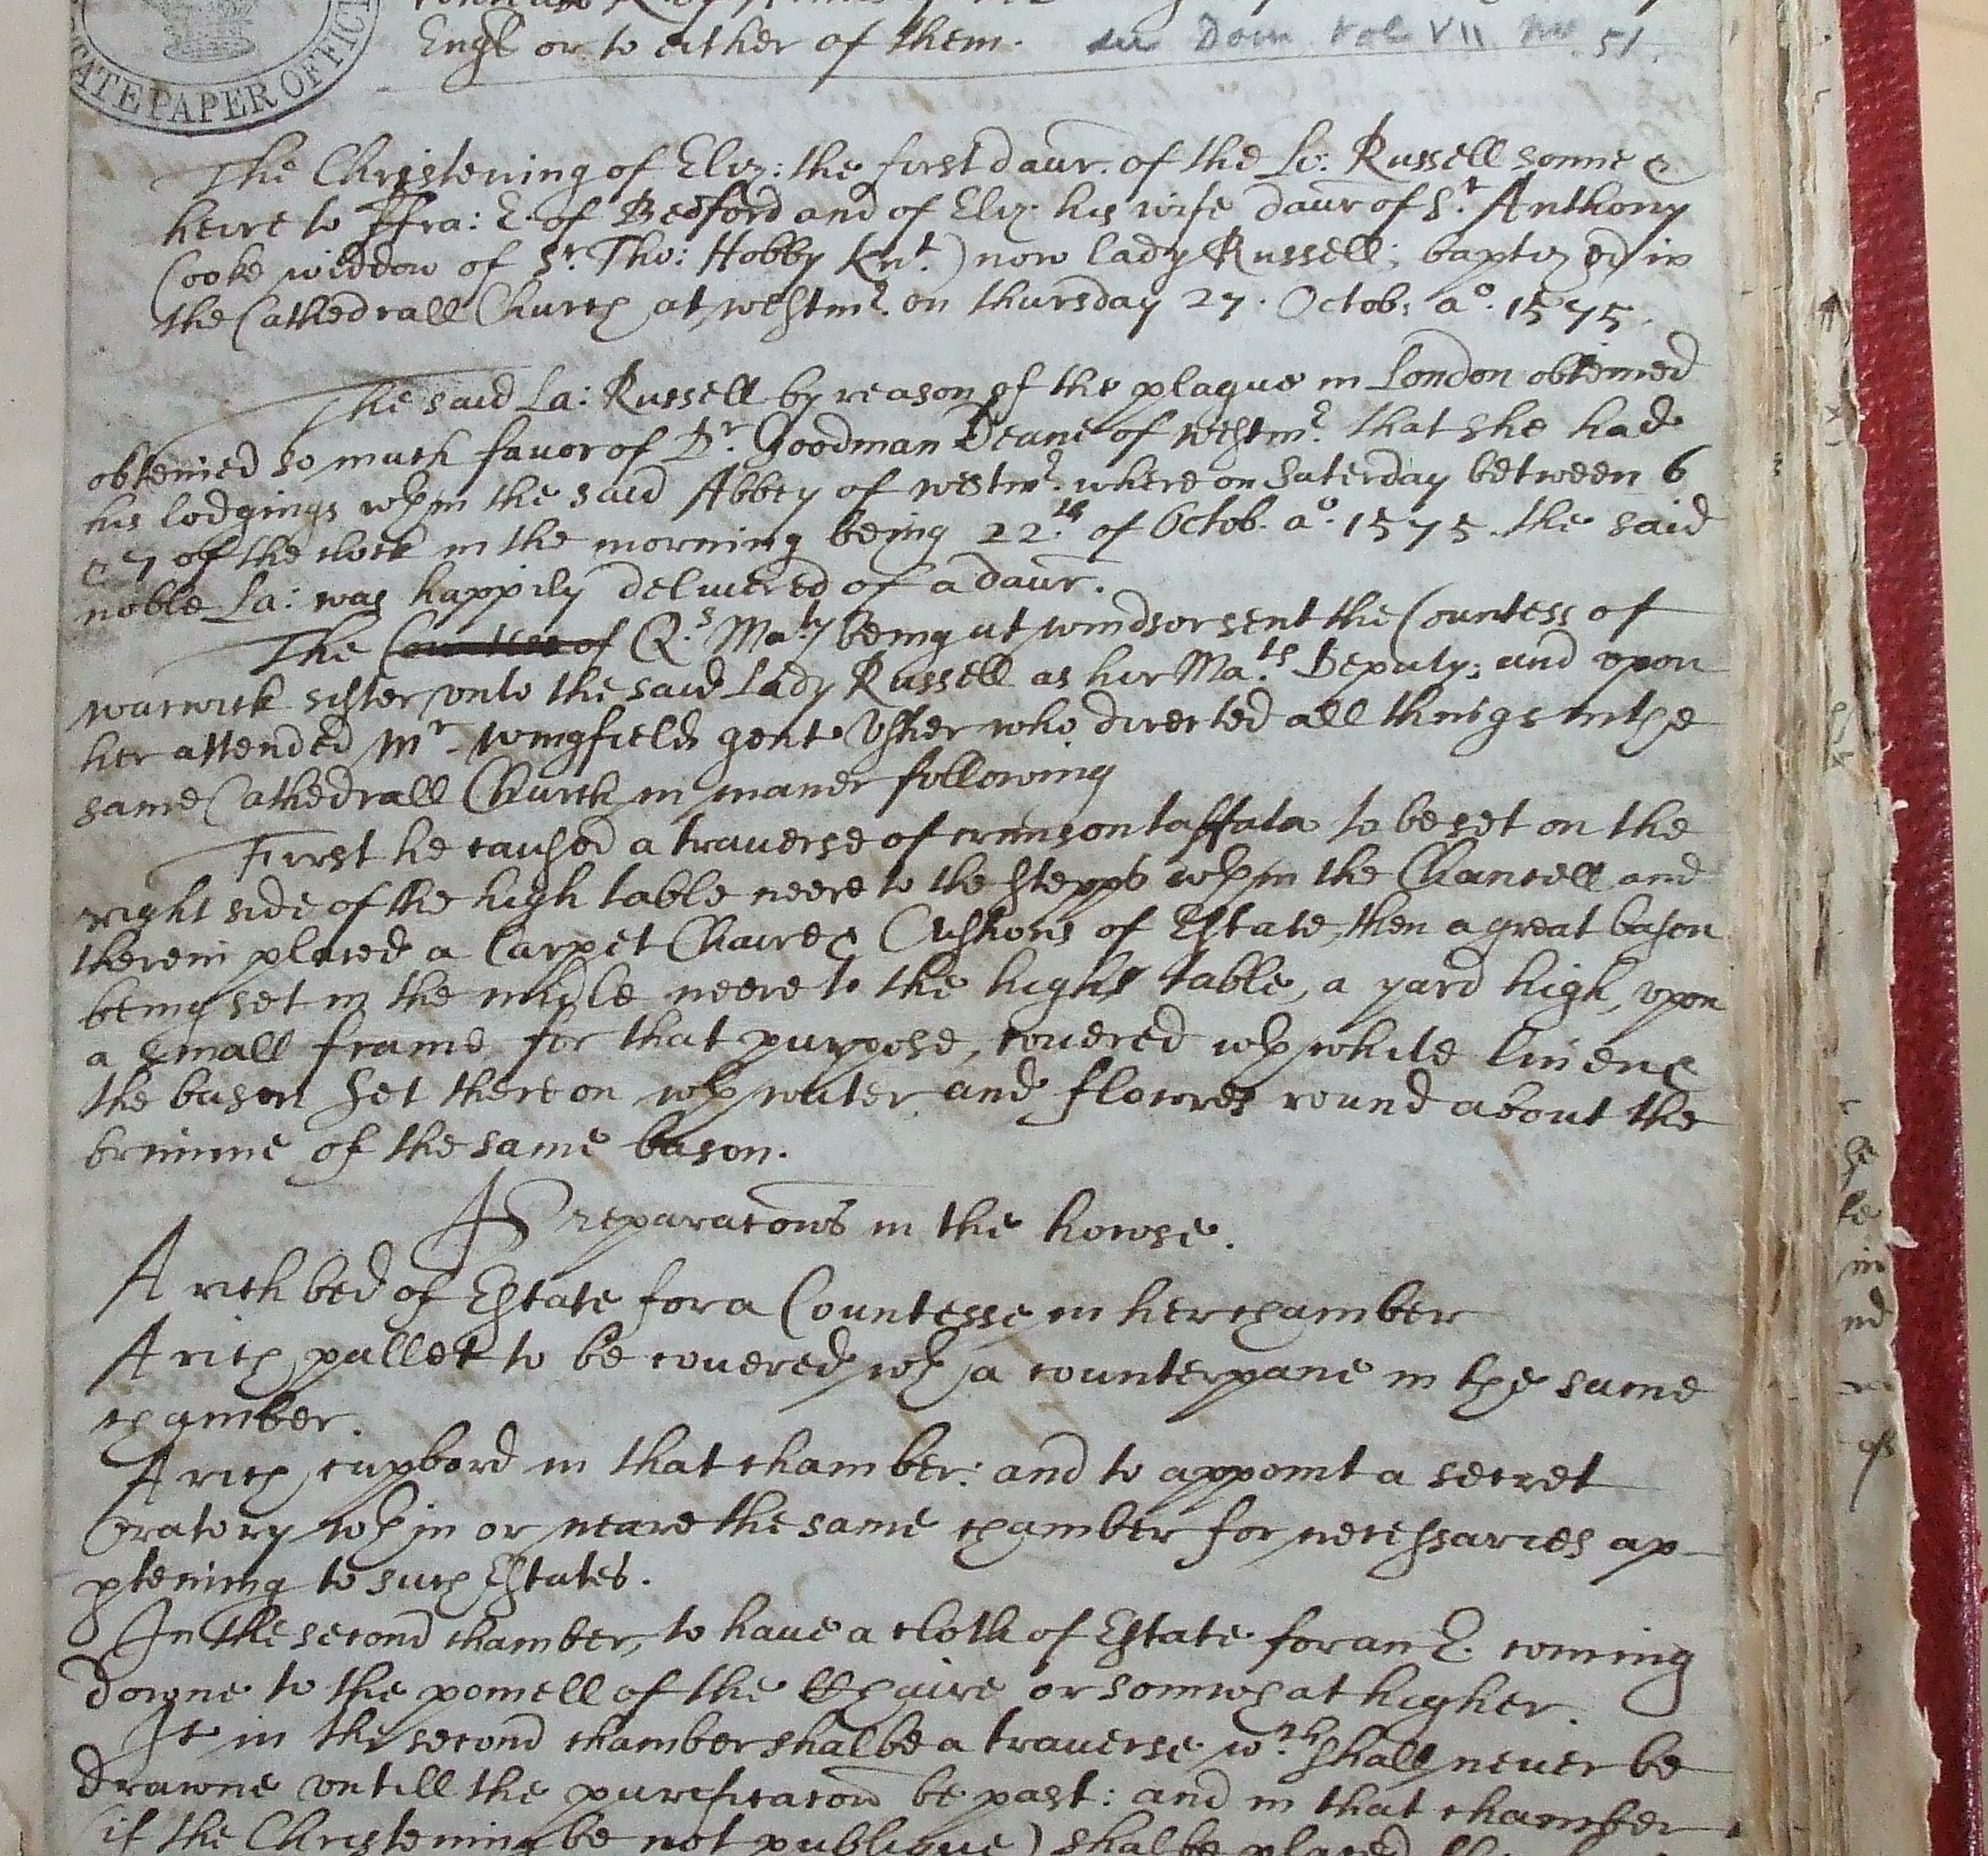 STATE PAPER OFFICE
Engl or to either of them. see Dom Vol VII No. 51.
The Christening of Eliz: the first daur. of the Lo: Russell sonne &
heire to ffra: E. of Bedford and of Eliz. his wife daur of Sr. Anthony
Cooke widdow of Sr. Tho: Hobby Knt.) now lady Russell; baptized in
the Cathedrall Church at westmr. on thursday 27. Octob: ao. 1575.
The said La: Russell by reason of the plague in London obteined
obteined so much favor of Dr. Goodman Deane of westmr. that she had
his lodgings wthin the said Abbey of westmr. where on Saterday betweene 6
& 7 of the clock in the morning being 22th. of Octob. ao. 1575. the said
noble La: was happily delivered of a daur.
The Countess of Q.s Maty being at windsor sent the Countess of
warwick sister vnto the said Lady Russell as her Mats. Deputy; and vpon
her attended mr. wingfield gent Vsher who directed all things in the
same Cathedrall Church in maner following
First he caused a trauerse of crimson taffata to be set on the
right side of the high table neere to the stepps wthin the Chancell and
therein placed a Carpet Chaire & Cushons of Estate, then a great bason
being set in the midle neere to the high table, a yard high, vpon
a small frame for that purpose, couered wth white linen &
the bason set thereon wth water and flowres round about the
brimme of the same bason.
Preparacons in the howse.
A rich bed of Estate for a Countesse in her chamber
A rich pallet to be couered wth a counterpane in the same
chamber.
A rich cupbord in that chamber: and to appoint a secret
Oratory wthin or neare the same chamber for necessaries ap-
pteining to such Estates.
In the second chamber, to haue a cloth of Estate for an E. coming
downe to the pomell of the Chaire or somwhat higher.
It in the second chamber shalbe a trauerse wch shall neuer be
drawne vntill the purificacon be past: and in that chamber
(if the Christening be not publique) shalbe placed